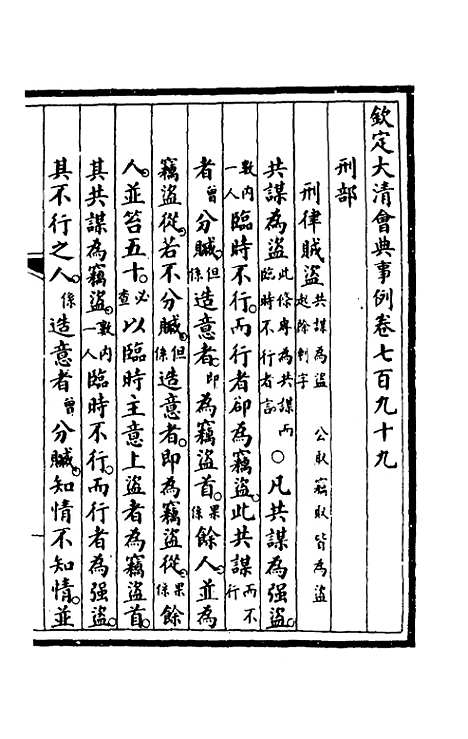 欽定大清會典事例卷七百九十九
刑部
刑律賊盜 共謀為盜 公取竊取皆為盜 起除刺字
共謀為盜 此條專為共謀而臨時不行者言 ○凡共謀為强盜。
數內一人臨時不行。而行者卻為竊盜。此共謀而不行
者曾分贓。但係造意者。即為竊盜首。果係餘人。並為
竊盜從。若不分贓。但係造意者。即為竊盜從。果係餘
人。並笞五十。必查以臨時主意上盜者為竊盜首。
其共謀為竊盜。數內一人臨時不行。而行者為强盜。
其不行之人。係造意者曾分贓。知情不知情。並